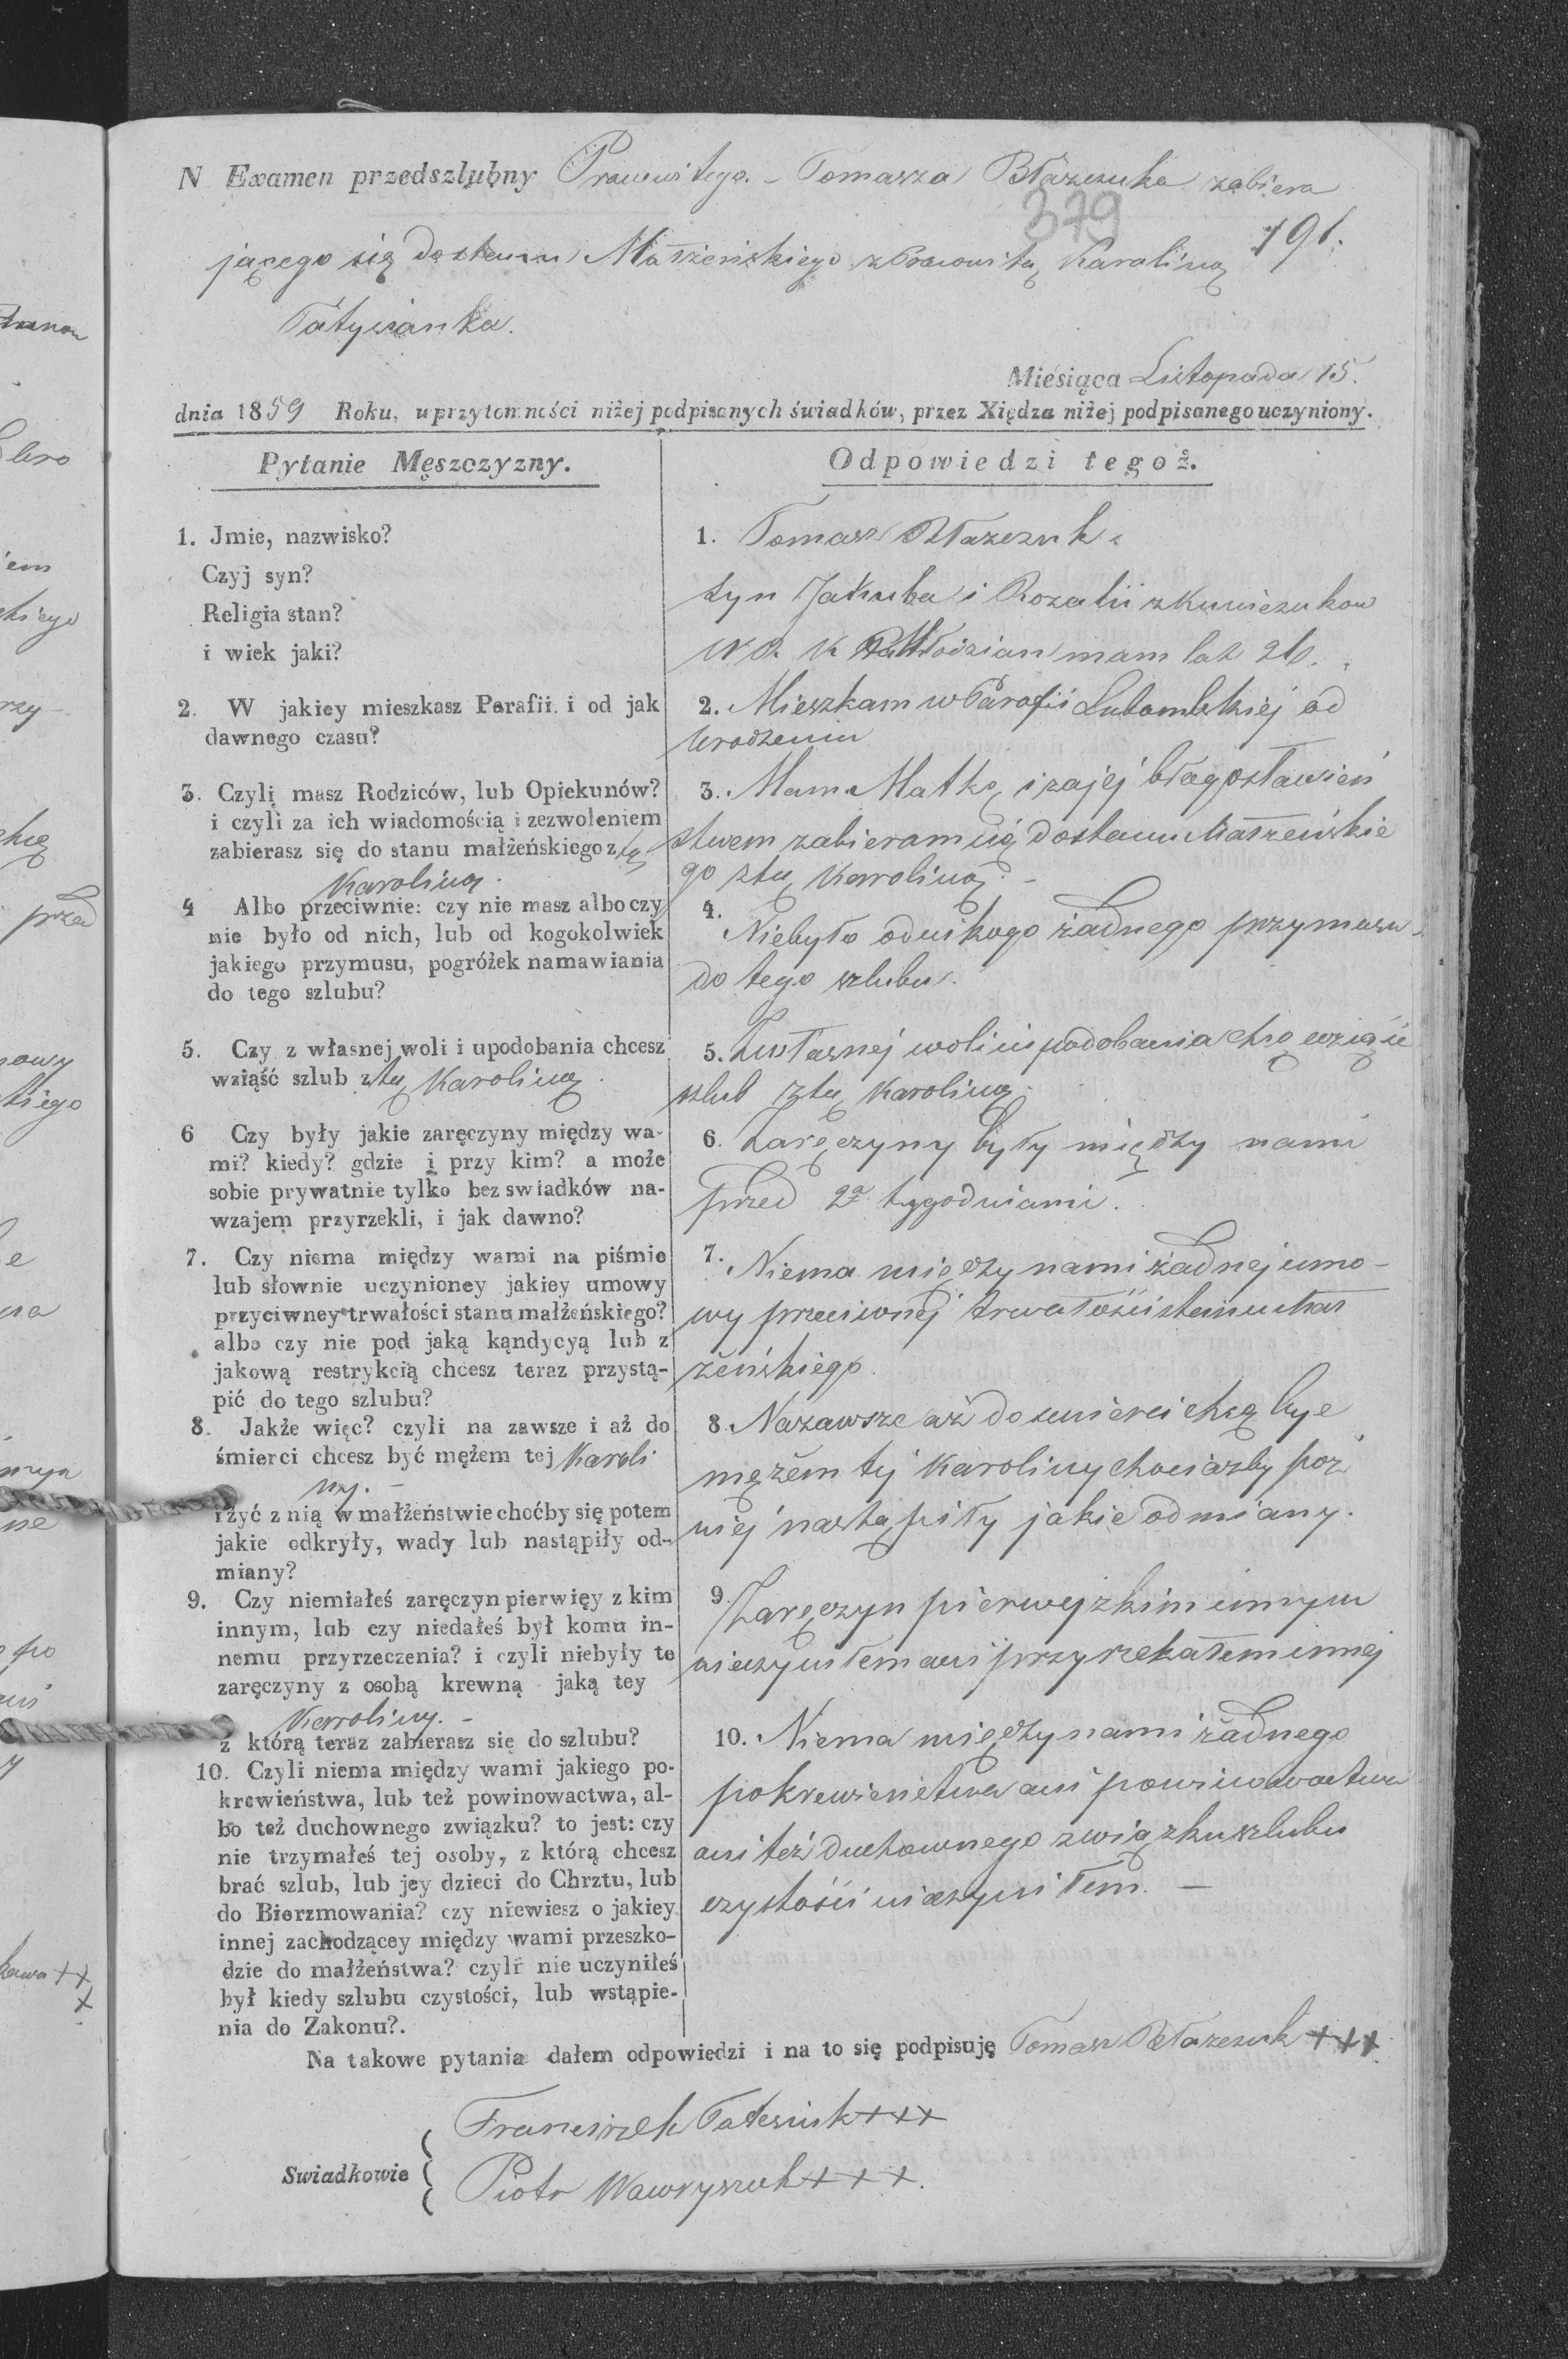 N Examen przedszlubny Prawowitego - Tomasza Błazczuka zabiera
379
191.
jącego się do stanu Małżeńskiego z Prawowitą Karoliną
Miesiąca Listopada 15.
dnia 1859 Roku, uprzytomności niżej podpisanych świadków, przez Xiędza niżej podpisanego uczyniony.
Pytanie Męszczyzny.
1. Jmie, nazwisko?
Czyj syn?
Religia stan?
i wiek jaki?
2. W jakiey mieszkasz Parafii i od jak
dawnego czasu?
3. Czyli masz Rodziców, lub Opiekunów?
i czyli za ich wiadomością i zezwoleniem
zabierasz się do stanu małżeńskiego z tą
Karoliną.
4 Albo przeciwnie: czy nie masz albo czy
nie było od nich, lub od kogokolwiek
jakiego przymusu, pogróżek namawiania
do tego szlubu?
5. Czy z własnej woli i upodobania chcesz
wziąść szlub z tą Karoliną.
6 Czy były jakie zaręczyny między wa-
mi? kiedy? gdzie i przy kim? a może
sobie prywatnie tylko bez swiadków na-
wzajem przyrzekli, i jak dawno?
7. Czy niema między wami na piśmie
lub słownie uczynioney jakiey umowy
przyciwney trwałości stanu małżeńskiego?
albo czy nie pod jaką kąndycyą lub z
jakową restrykcią chcesz teraz przystą-
pić do tego szlubu?
8. Jakże więc? czyli na zawsze i aż do
śmierci chcesz być mężem tej Karoli
ny. -
i żyć z nią w małżeństwie choćby się potem
jakie odkryły, wady lub nastąpiły od-
miany?
9. Czy niemiałeś zaręczyn pierwięy z kim
innym, lub czy niedałeś był komu in-
nemu przyrzeczenia? i czyli niebyły te
zaręczyny z osobą krewną jaką tey
Karoliny. -
z którą teraz zabierasz się do szlubu?
10. Czyli niema między wami jakiego po-
krewieństwa, lub też powinowactwa, al-
bo też duchownego związku? to jest: czy
nie trzymałeś tej osoby, z którą chcesz
brać szlub, lub jey dzieci do Chrztu, lub
do Bierzmowania? czy niewiesz o jakiey
innej zachodzącey między wami przeszko-
dzie do małżeństwa? czyli nie uczyniłeś
był kiedy szlubu czystości, lub wstąpie-
nia do Zakonu?.
Odpowiedzi tegoż.
1. Tomasz Błazczuk
syn Jakuba i Rozalii z
W. R. K. Młodzian mam lat 26.
2. Mieszkam w Parafii od
urodzenia
3. Mam Matkę i za jej błagosławień
stwem zabieram się do stanu Małżeńskie
go z tą Karoliną. -
4. Niebyło od nikogo żadnego przymusu
do tego szlubu.
5. Z własnej woli i upodobania chcę wziąść
szlub z tą Karoliną.
6. Zaręczyny były między nami
przed 2a tygodniami.
7. Niema między nami żadnej umo-
wy przeciwnej trwałości stanu Mał
żeńskiego.
8. Na zawsze aż do smierci chcę być
mężem tej Karoliny chociażby poź
niej nastąpiły jakie odmiany.
9. Zaręczyn pierwej z kim innym
nieczyniłem ani przyrzekałem innej
10. Niema między nami żadnego
pokrewieństwa ani powinowactwa
ani też duchownego związku szlubu
czystości nieczyniłem. -
Na takowe pytania dałem odpowiedzi i na to się podpisuję Tomasz Błazczuk +++
Swiadkowie
Franciszek +++
Piotr Wawryszuk +++.